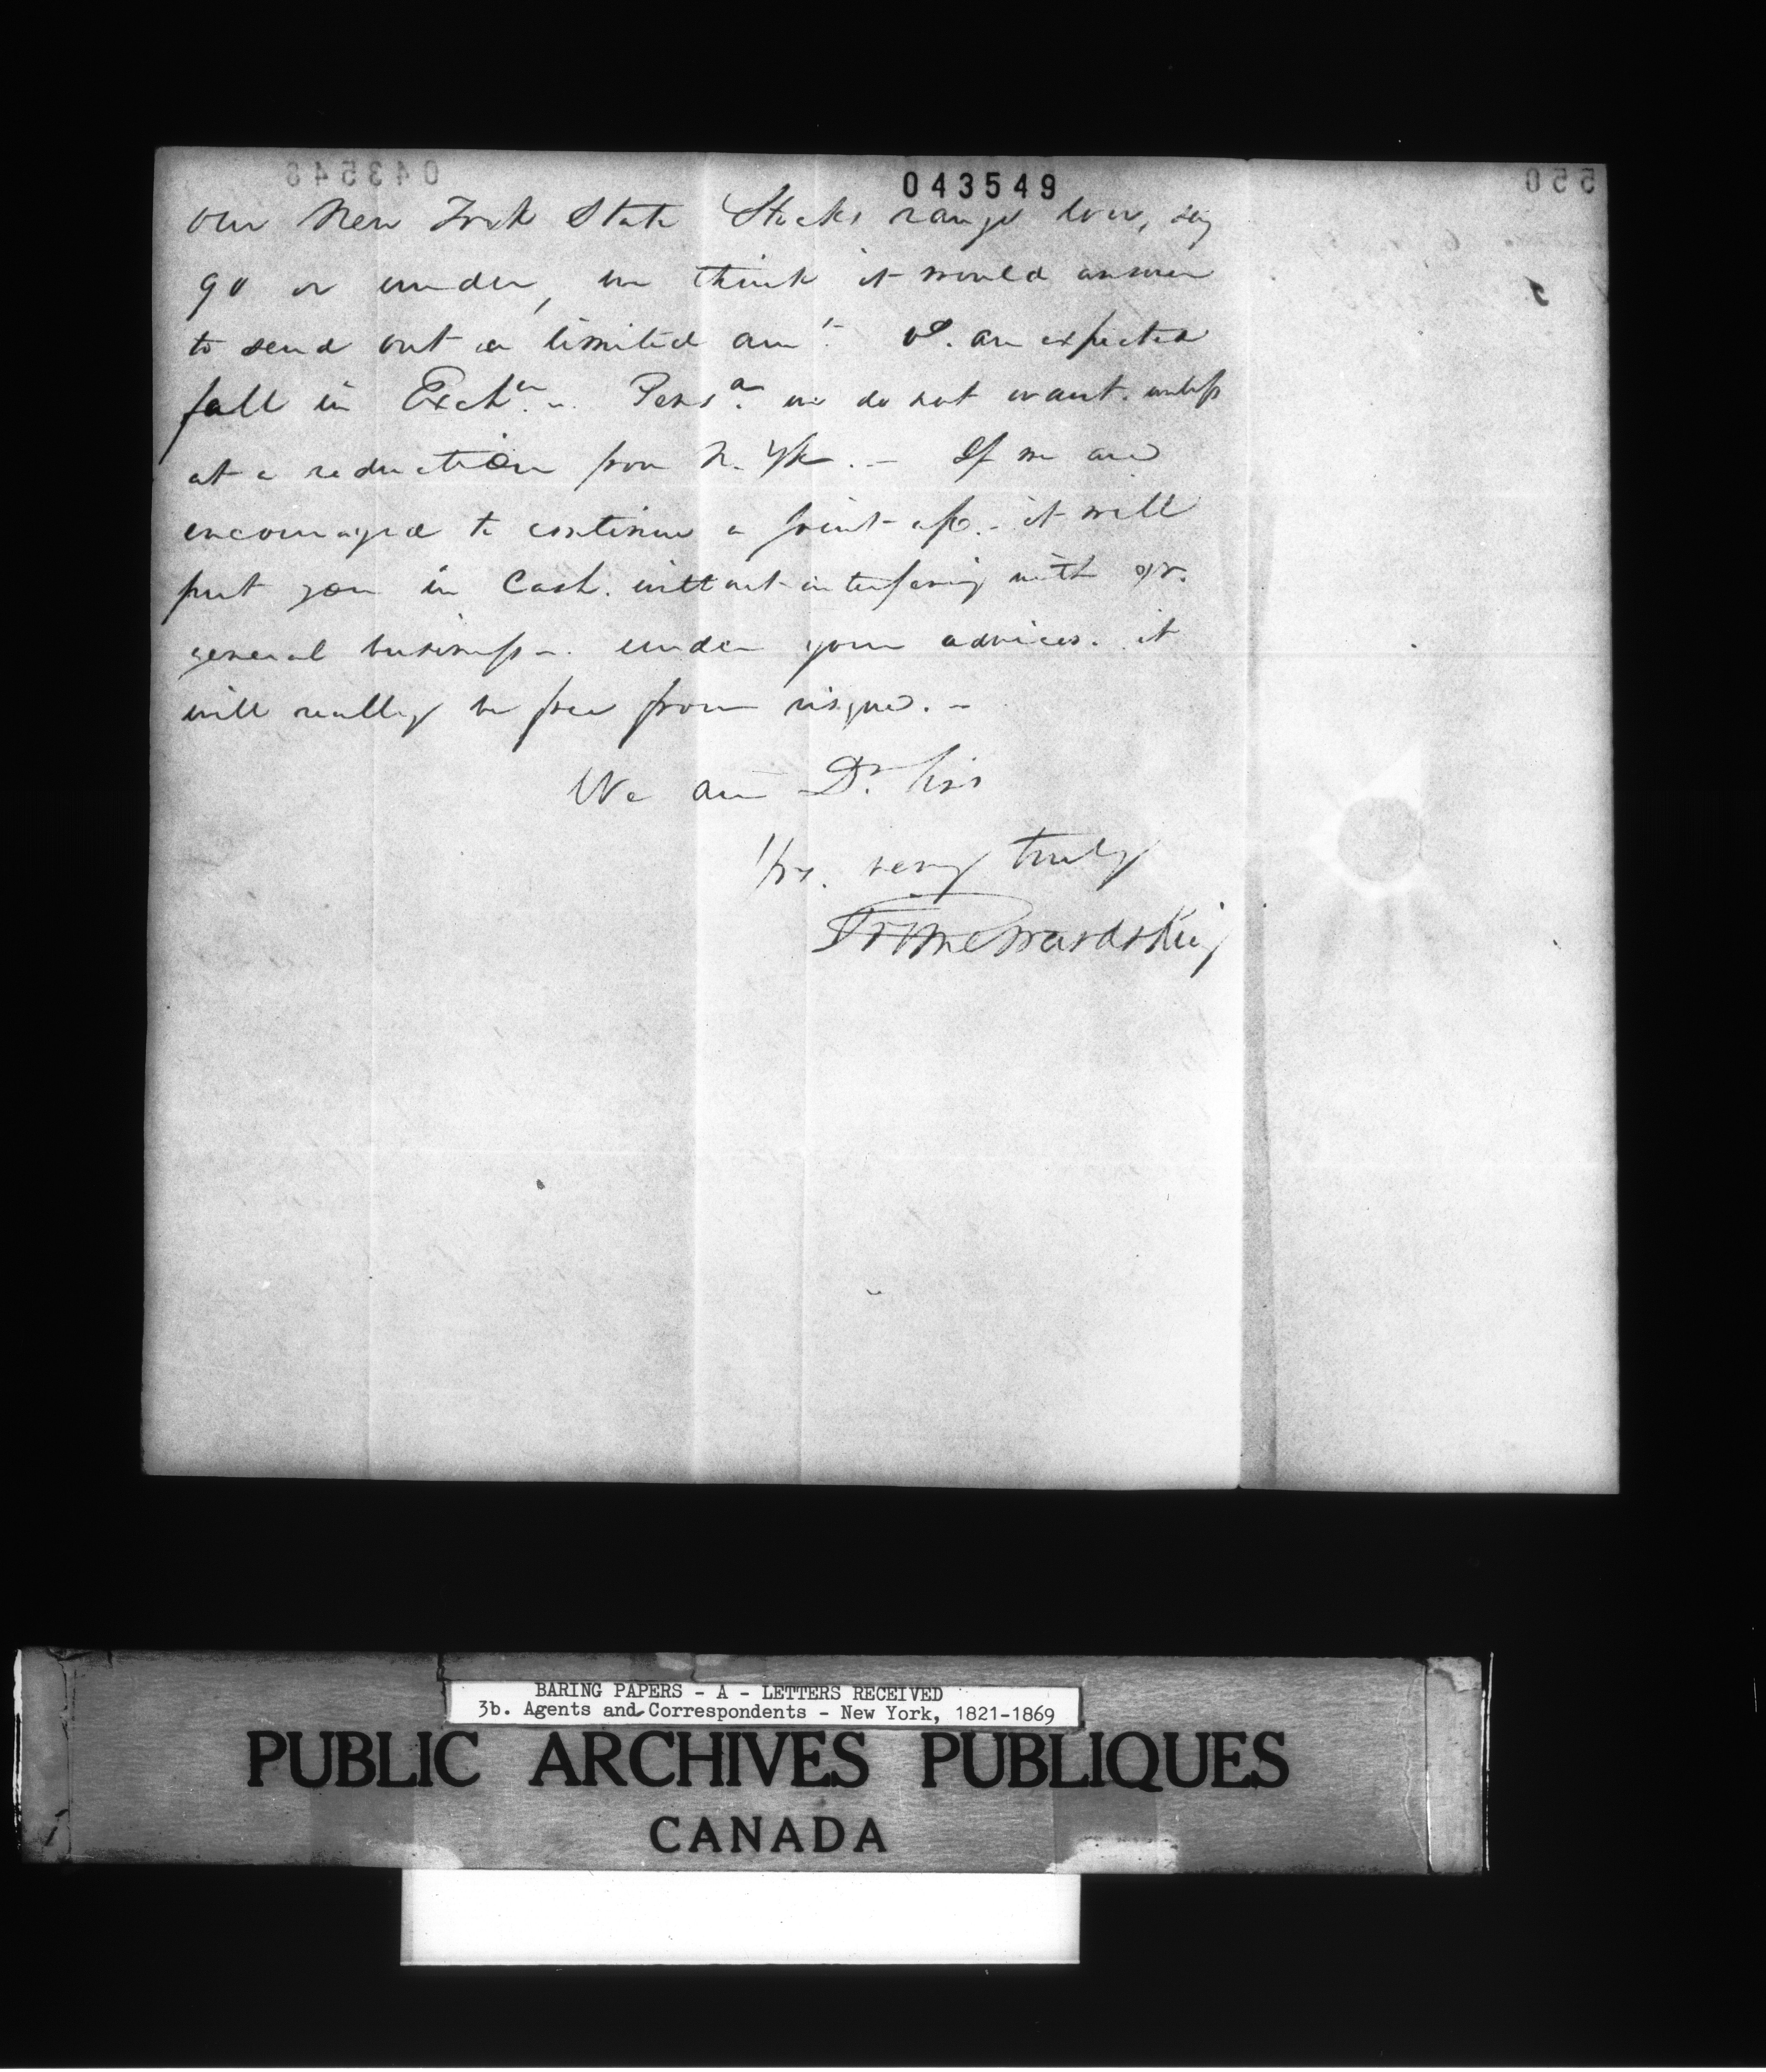 043549
our New York State Stocks range low, say
90 or under, we think it would answer
to send out a limited amt. & an expected
fall in Exche. Pensa. we do not want. unless
at a reduction from N. Yk. - If we are
encouraged to continue a joint a/c. - it will
put you in Cash. without interfering with yr.
general business -. under your advices. it
will really be free from risque. -
We are Dr. Sirs
Yrs. very truly
Prime Ward & King
BARING PAPERS - A - LETTERS RECEIVED
3b. Agents and Correspondents - New York, 1821-1869
PUBLIC ARCHIVES PUBLIQUES
CANADA